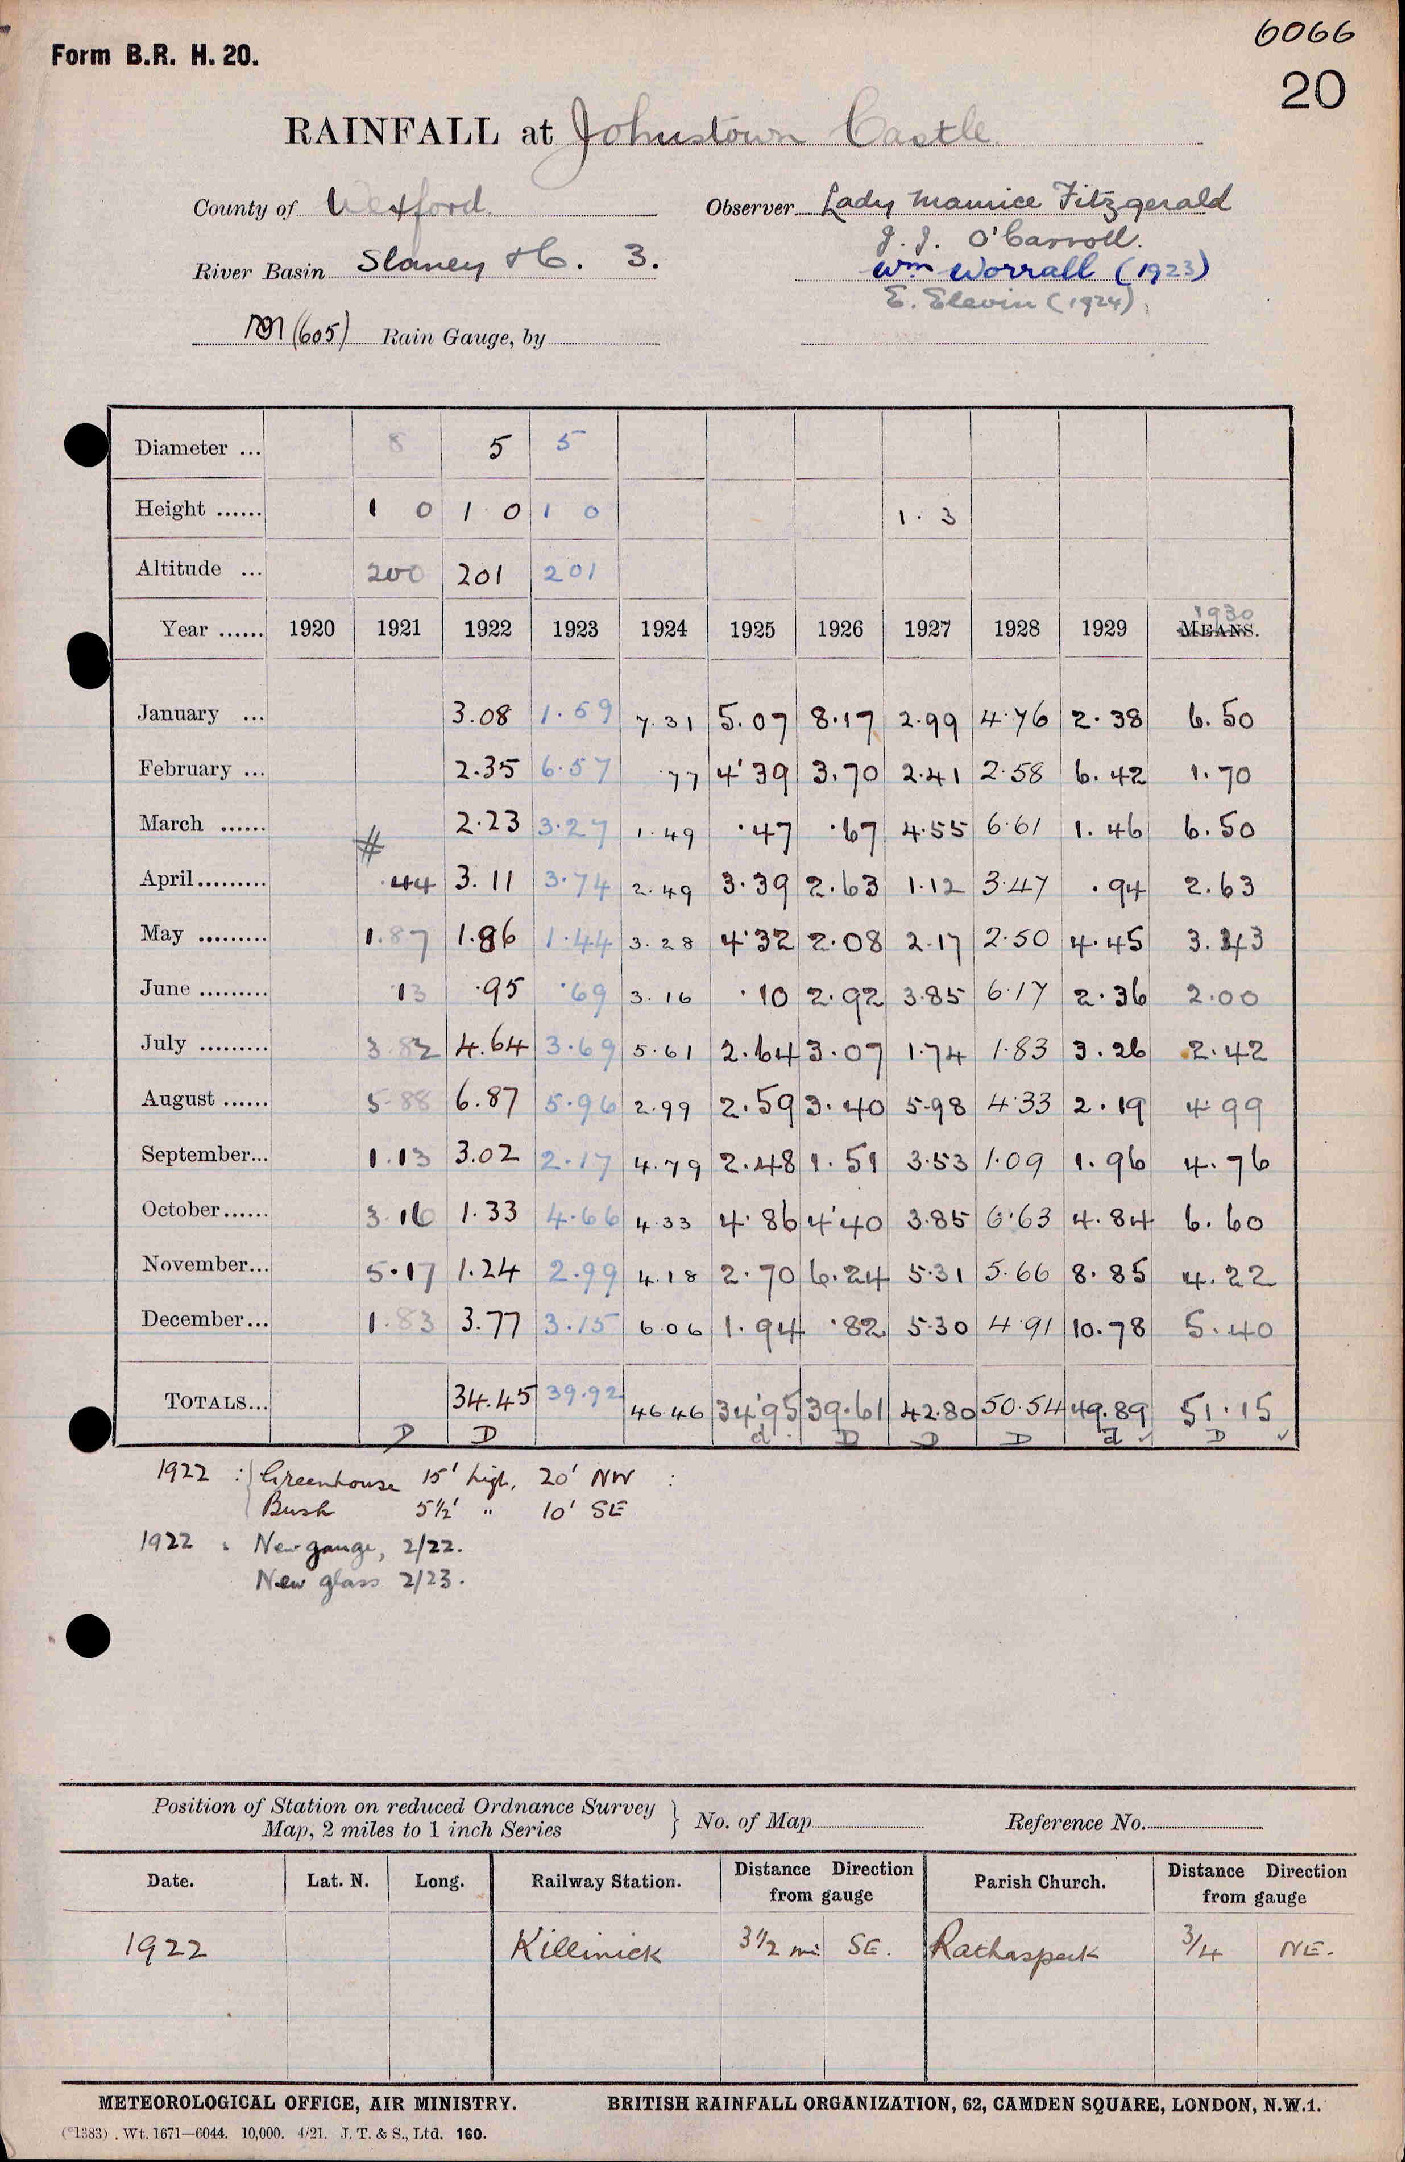 6066
Form B.R. H. 20.
20
RAINFALL at Johnstown Castle
County of Wexford
Observer Lady Maurice Fitzgerald
J. J. O'Carroll.
River Basin Slaney &C. 3.
Wm Worrall (1923)
E. Slevin (1924)
(605) Rain Gauge, by
Diameter ... 8 5 5
Height ...... 1 0 1 0 1 0 1. 3
Altitude ... 200 201 201
1930
Year ...... 1920 1921 1922 1923 1924 1925 1926 1927 1928 1929 MEANS.
January ... 3.08 1.59 7.31 5.07 8.17 2.99 4.76 2.38 6.50
February ... 2.35 6.57 .77 4.39 3.70 2.41 2.58 6.42 1.70
March ...... # 2.23 3.27 1.49 .47 .67 4.55 6.61 1.46 6.50
April......... .44 3.11 3.74 2.49 3.39 2.63 1.12 3.47 .94 2.63
May ......... 1.87 1.86 1.44 3.28 4.32 2.08 2.17 2.50 4.45 3.43
June ......... .13 .95 .69 3.16 .10 2.92 3.85 6.17 2.36 2.00
July ......... 3.82 4.64 3.69 5.61 2.64 3.07 1.74 1.83 3.26 2.42
August ...... 5.88 6.87 5.96 2.99 2.59 3.40 5.98 4.33 2.19 4.99
September... 1.13 3.02 2.17 4.79 2.48 1.51 3.53 1.09 1.96 4.76
October...... 3.16 1.33 4.66 4.33 4.86 4.40 3.85 6.63 4.84 6.60
November... 5.17 1.24 2.99 4.18 2.70 6.24 5.31 5.66 8.85 4.22
December... 1.83 3.77 3.15 6.06 1.94 .82 5.30 4.91 10.78 5.40
TOTALS... 34.45 39.92 46.46 34.95 39.61 42.80 50.54 49.89 51.15
D D d D D D d ✓ D ✓
1922 : { Greenhouse 15' high, 20' NW :
Bush 5½' " 10' SE
1922 : New gauge, 2/22.
New glass 2/23.
Position of Station on reduced Ordnance Survey
Map, 2 miles to 1 inch Series } No. of Map Reference No.
Date. Lat. N. Long. Railway Station. Distance Direction from gauge Parish Church. Distance Direction from gauge
1922 Killinick 3½ mi SE. Rathaspeck 3/4 NE.
METEOROLOGICAL OFFICE, AIR MINISTRY. BRITISH RAINFALL ORGANIZATION, 62, CAMDEN SQUARE, LONDON, N.W.1.
(*1383) . Wt. 1671—6044. 10,000. 4/21. J. T. & S., Ltd. 160.